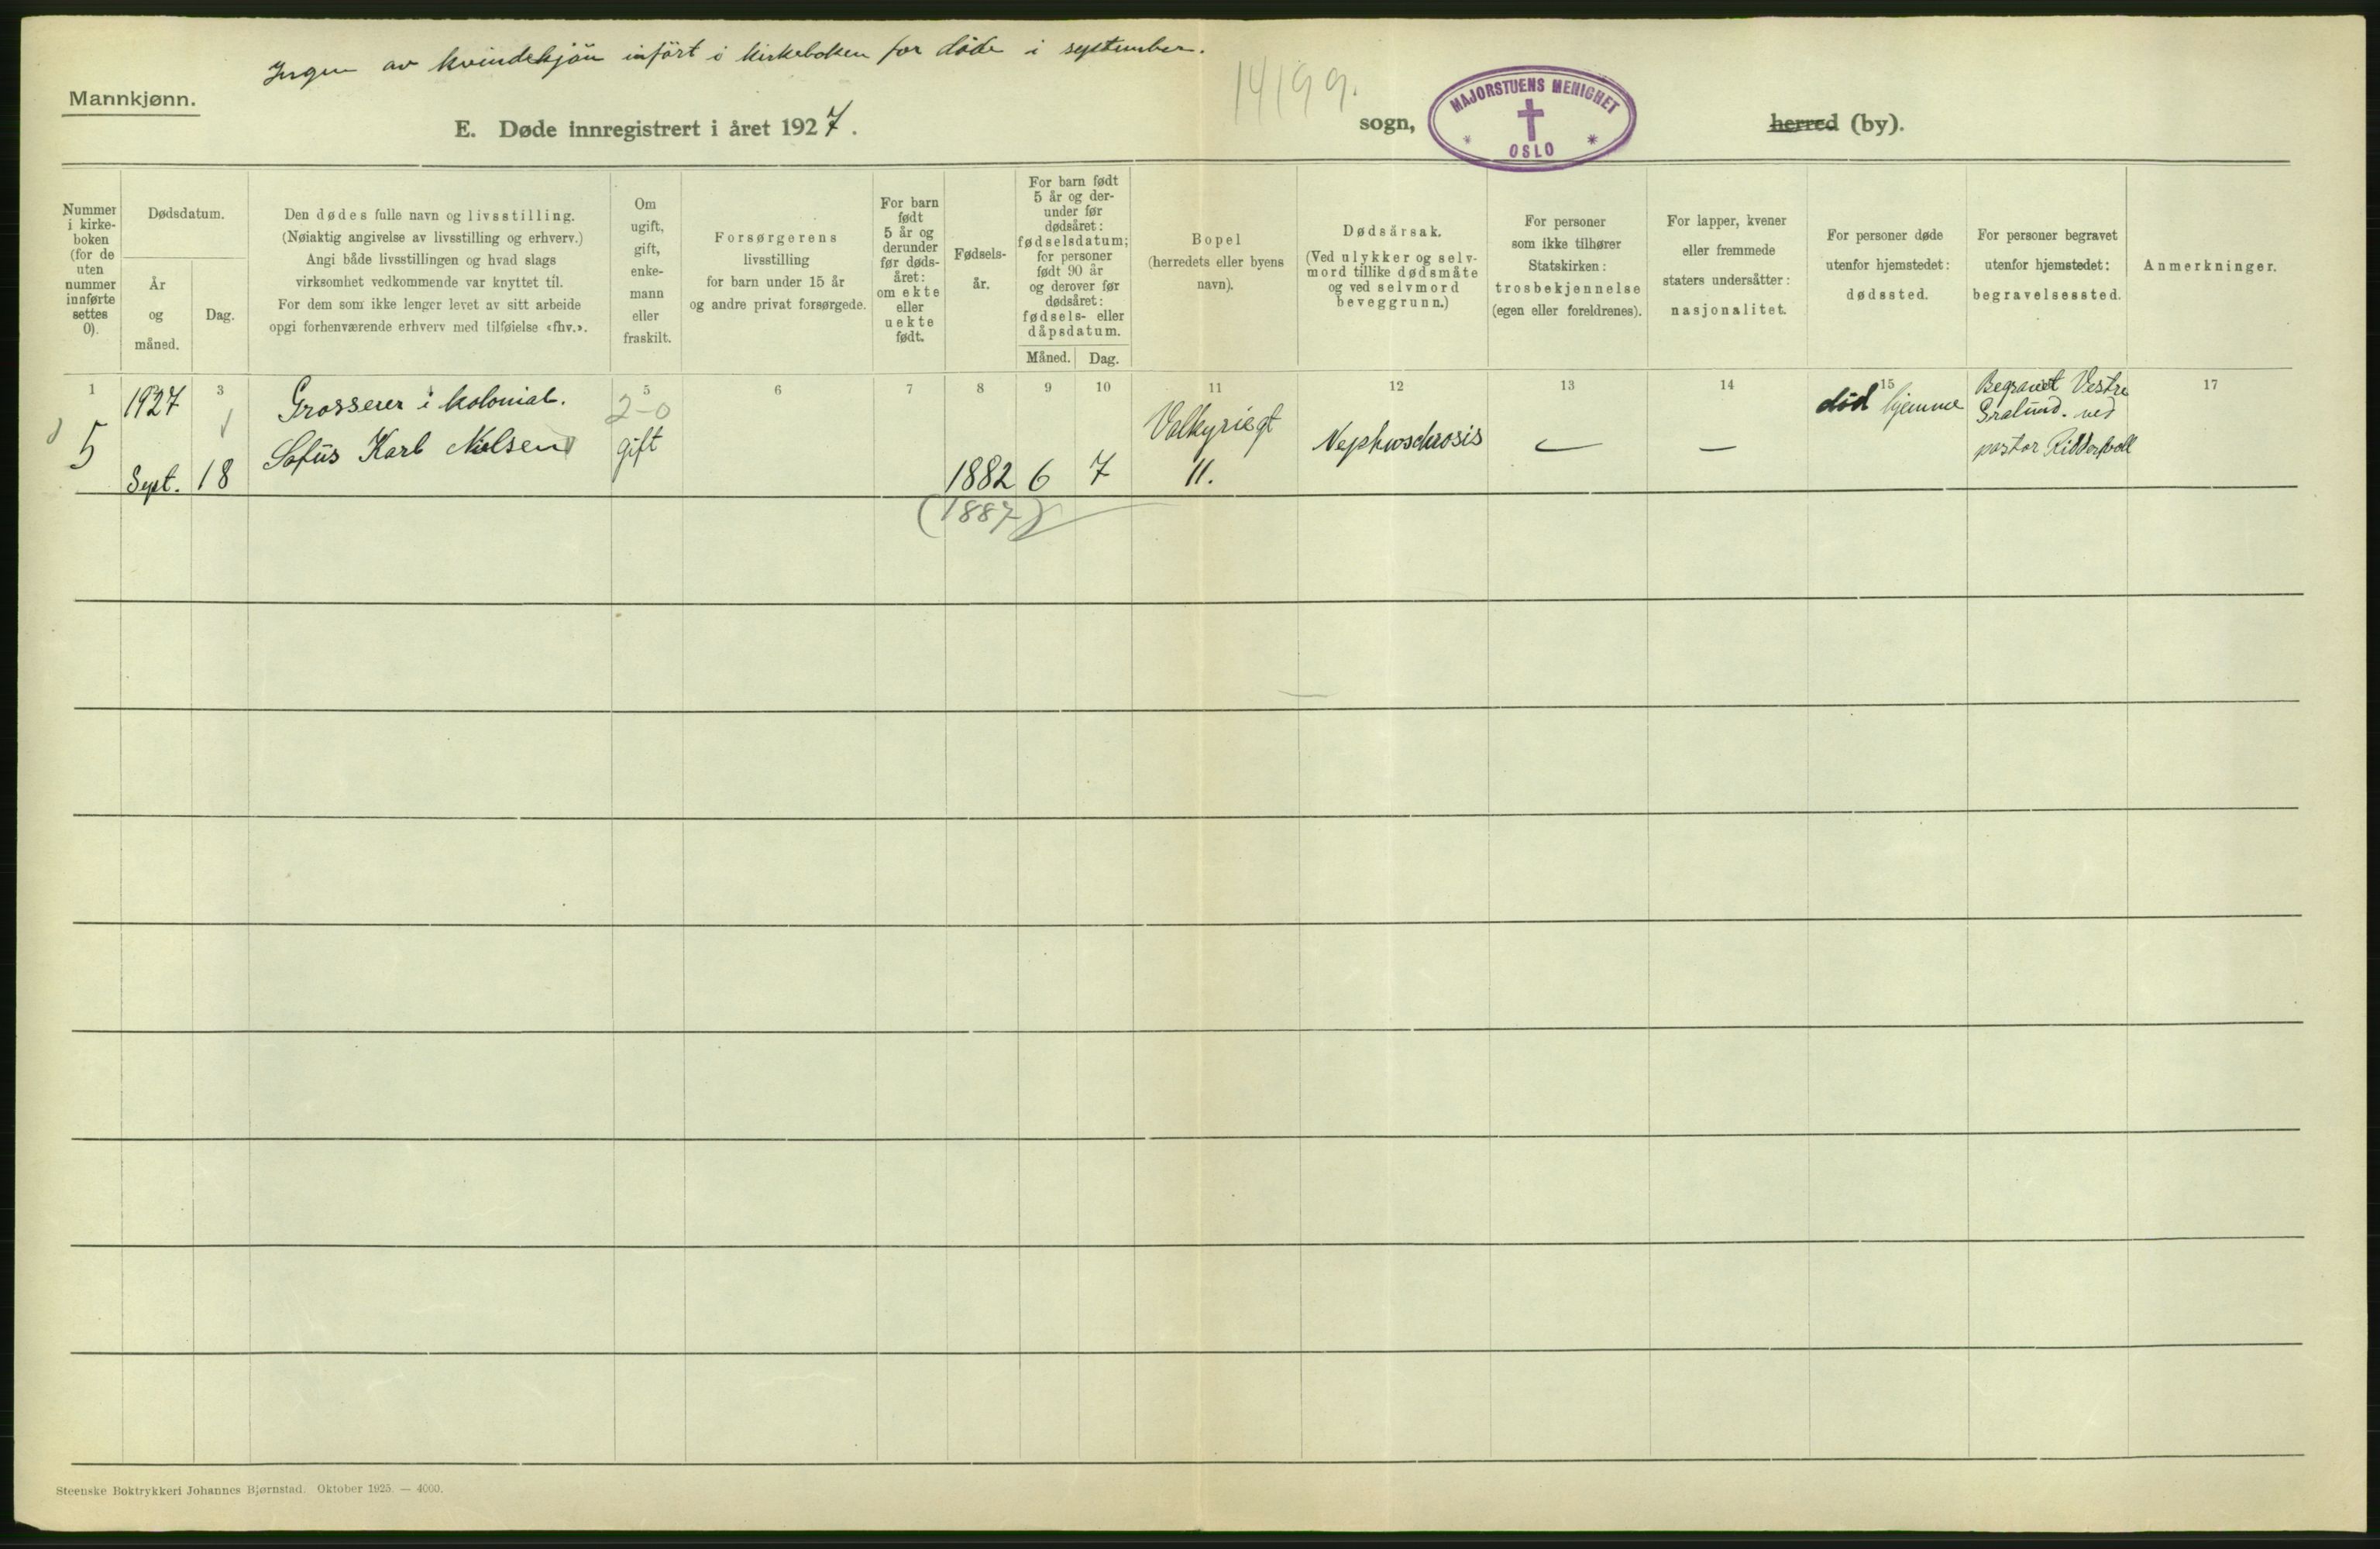 Ingen av kvindekjön infört i kirkeboken for døde i september.
14199.
Mannkjønn.
E. Døde innregistrert i året 1927.
sogn,
MAJORSTUENS MENIGHET
* *
OSLO
herred (by).
Nummer
i kirke-
boken
(for de
uten
nummer
innførte
settes
0).
Dødsdatum.
År
og
måned.
Dag.
Den dødes fulle navn og livsstilling.
(Nøiaktig angivelse av livsstilling og erhverv.)
Angi både livsstillingen og hvad slags
virksomhet vedkommende var knyttet til.
For dem som ikke lenger levet av sitt arbeide
opgi forhenværende erhverv med tilføielse «fhv.».
Om
ugift,
gift,
enke-
mann
eller
fraskilt.
Forsørgerens
livsstilling
for barn under 15 år
og andre privat forsørgede.
For barn
født
5 år og
derunder
før døds-
året:
om ekte
eller
uekte
født.
Fødsels-
år.
For barn født
5 år og der-
under før
dødsåret:
fødselsdatum;
for personer
født 90 år
og derover før
dødsåret:
fødsels- eller
dåpsdatum.
Måned. Dag.
Bopel
(herredets eller byens
navn).
Dødsårsak.
(Ved ulykker og selv-
mord tillike dødsmåte
og ved selvmord
beveggrunn.)
For personer
som ikke tilhører
Statskirken:
trosbekjennelse
(egen eller foreldrenes).
For lapper, kvener
eller fremmede
staters undersåtter:
nasjonalitet.
For personer døde
utenfor hjemstedet:
dødssted.
For personer begravet
utenfor hjemstedet:
begravelsessted.
Anmerkninger.
1 3 5 6 7 8 9 10 11 12 13 14 15 17
5
1927
Sept. 18
Grosserer i kolonial.
Sofus Karl Nielsen
2-0
gift
1882 6 7
(1887)
Valkyriegt
11.
Nephrosclerosis
—
—
död hjemme
Begravet Vestre
Gralund. ved
pastor
Steenske Boktrykkeri Johannes Bjørnstad. Oktober 1925. — 4000.